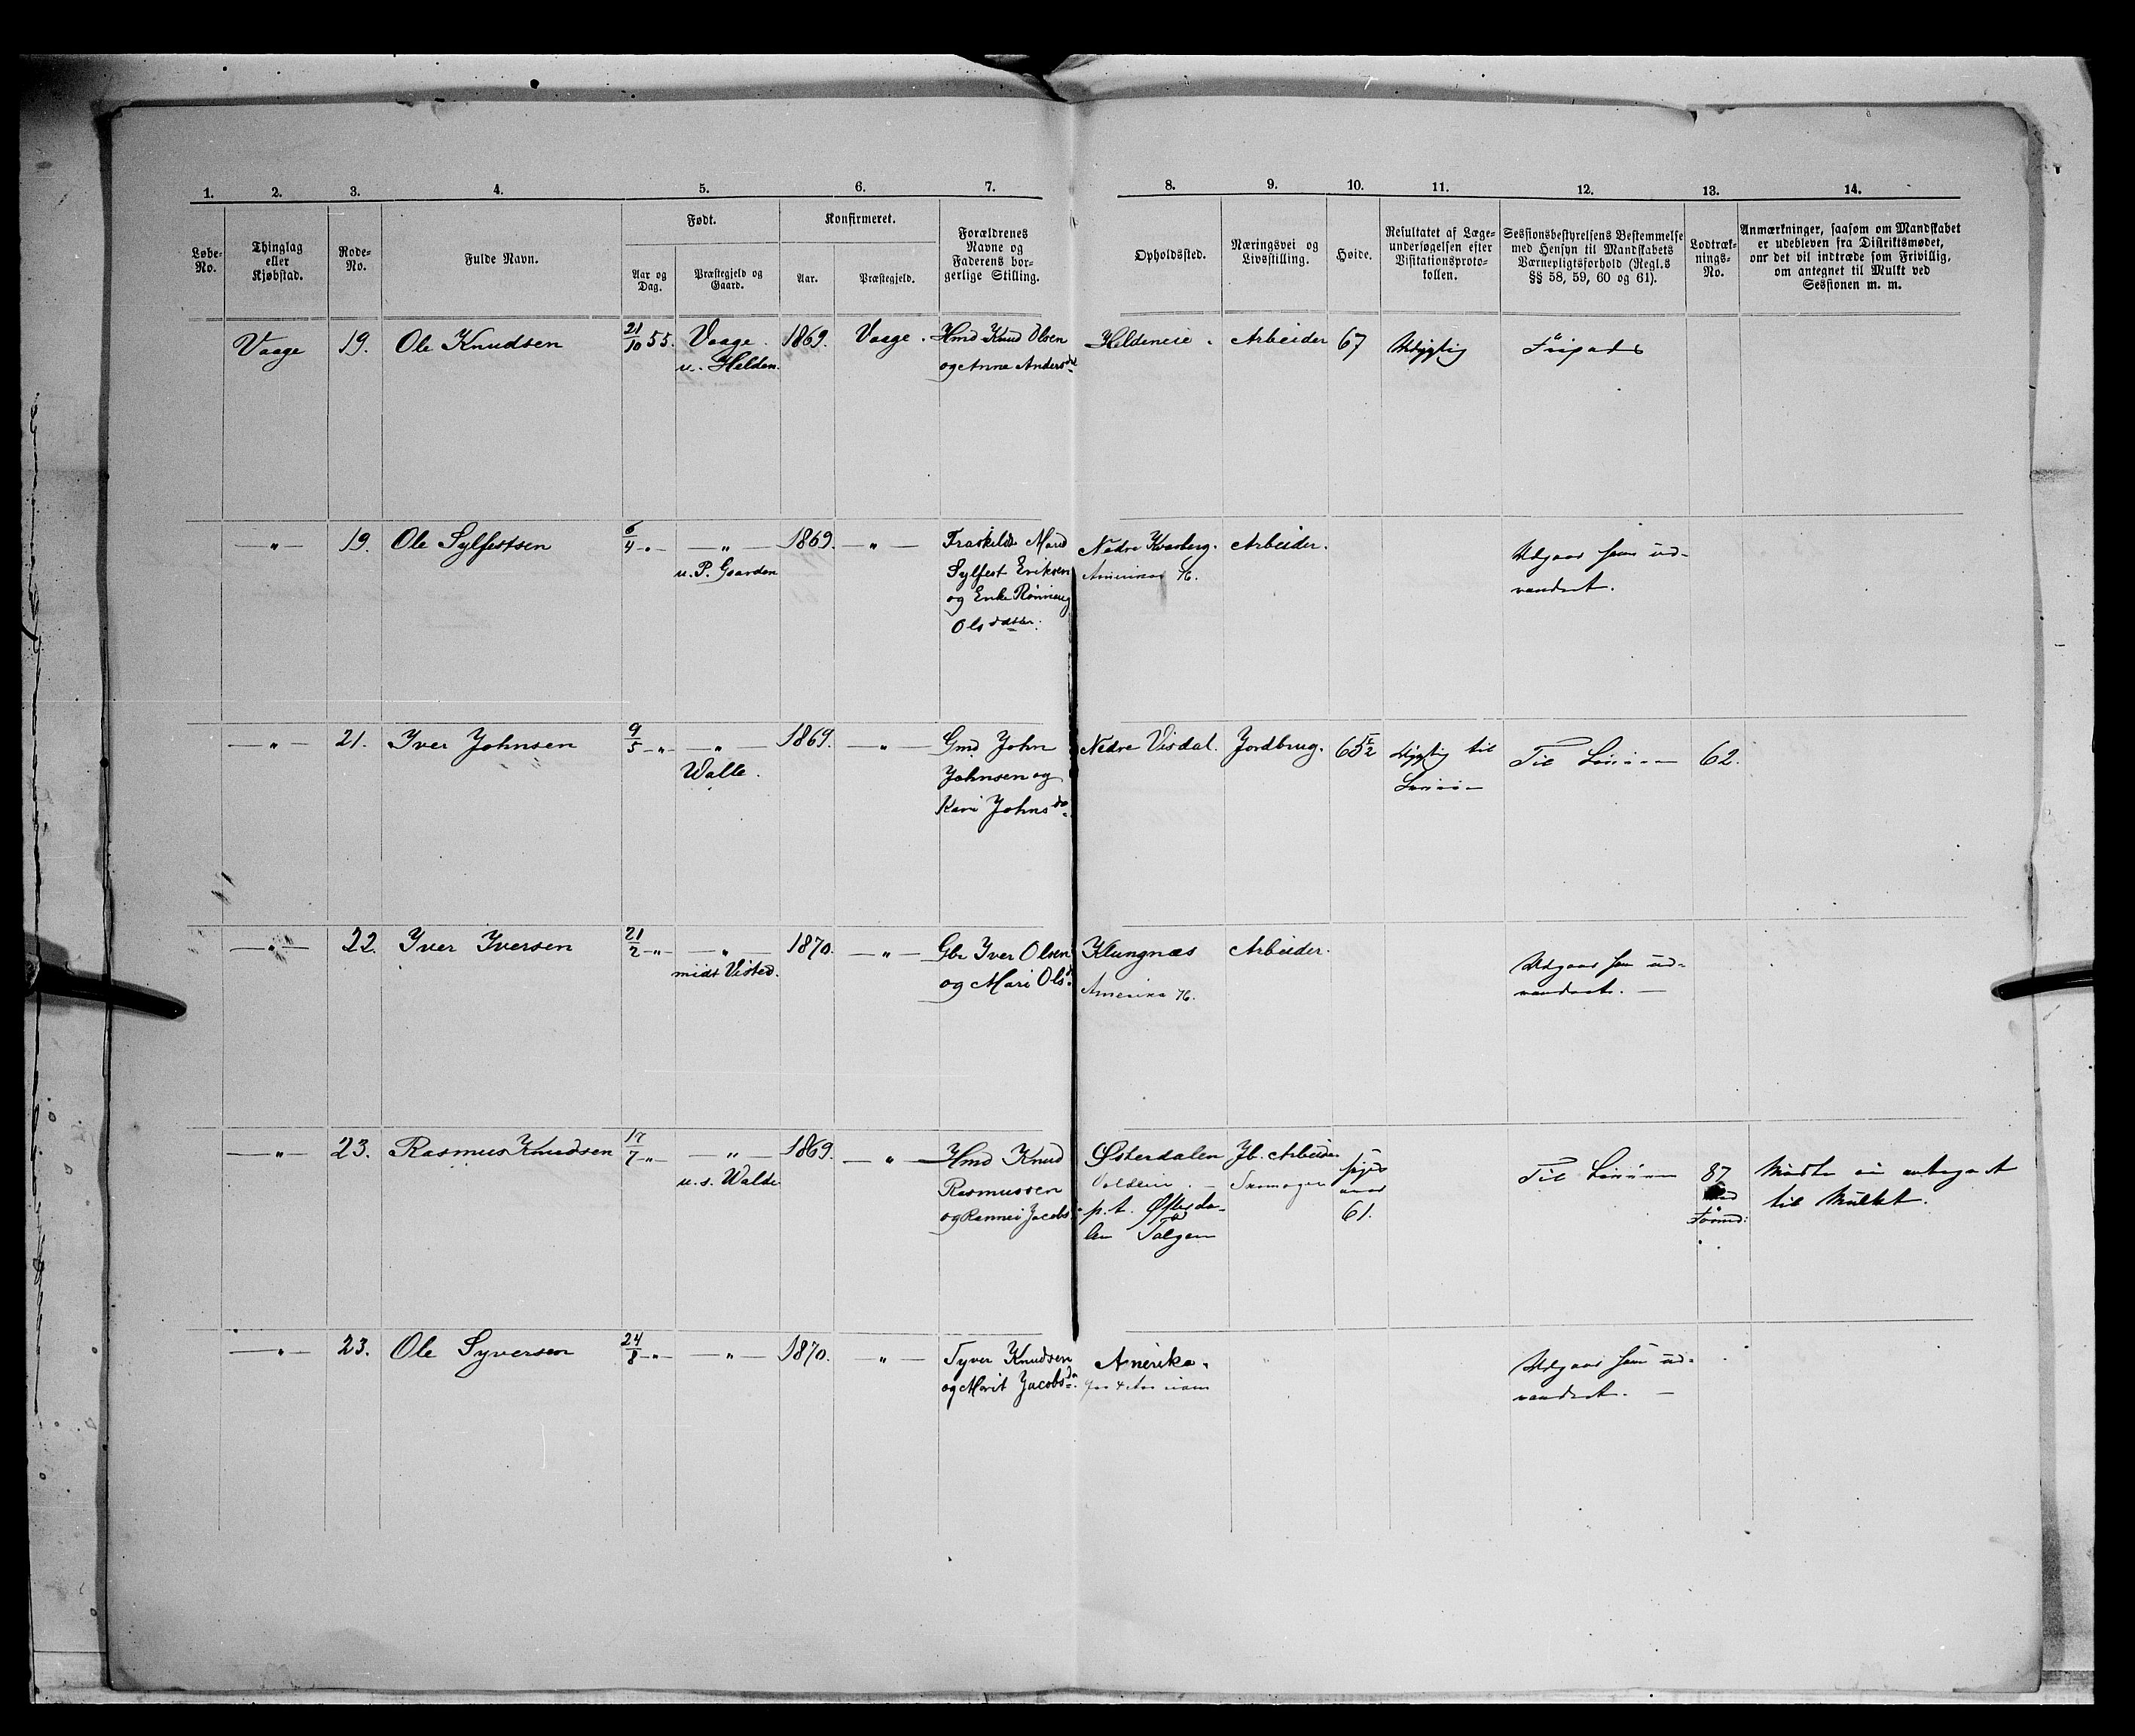 1. 2. 3. 4. 5. 6. 7. 8. 9. 10. 11. 12. 13. 14.
Løbe-
No.
Thinglag
eller
Kjøbstad.
Rode-
No.
Fulde Navn.
Født.
Aar og
Dag.
Præstegjeld og
Gaard.
Konfirmeret.
Aar.
Præstegjeld.
Forældrenes
Navne og
Faderens bor-
gerlige Stilling.
Opholdssted.
Næringsvei og
Livsstilling.
Høide.
Resultatet af Læge-
undersøgelsen efter
Visitationsproto-
kollen.
Sessionsbestyrelsens Bestemmelse
med Hensyn til Mandskabets
Værnepligtsforhold (Regl.s
§§ 58, 59, 60 og 61).
Lodtræk-
nings-
No.
Anmærkninger, saasom om Mandskabet
er udebleven fra Distriktsmødet,
om det vil indtræde som Frivillig,
om antegnet til Mulkt ved
Sessionen m. m.
Vaage 19. Ole Knudsen 21/10 55. Vaage. 1869. Vaage. Hmd Knud Olsen Heldeneie. Arbeider 67 Udygtig Fripas
u. Helden. og Anna Andersdr
—"— 19. Ole Sylfestsen 6/4 —"— —"— 1869. —"— Fraskildt Mand Nedre Kvarberg. Arbeider. Udgaar som ud-
u. P. Gaarden Sylfest Eriksen Amerika 76. vandret.
og Enke Rønnaug
Olsdatter.
—"— 21. Iver Johnsen 9/5 —"— —"— 1869. —"— Gmd John Nedre Visdal. Jordbrug. 65 1/2 dygtig til Til Linien 62.
Walle. Johnsen og Linien
Kari Johnsdr
—"— 22. Iver Iversen 21/2 —"— —"— 1870. —"— Gbr Iver Olsen Klungnæs Arbeider. Udgaar som ud-
midt Visted. og Mari Olsd. Amerika 76. vandret. —
—"— 23. Rasmus Knudsen 17/7 —"— —"— 1869. —"— Hmd Knud Østerdalen Jb. Arbeider Til Linien 87 Mødte ei antegnet
u. s. Walde Rasmussen Skomager til Mulkt.
og Rannei Jacobs p. t. Østerda- 61.
len Tolgen
—"— 23. Ole Syversen 24/8 —"— —"— 1870. —"— Syver Knudsen Amerika. Udgaar som ud-
og Marit Jacobsdr vandret. —